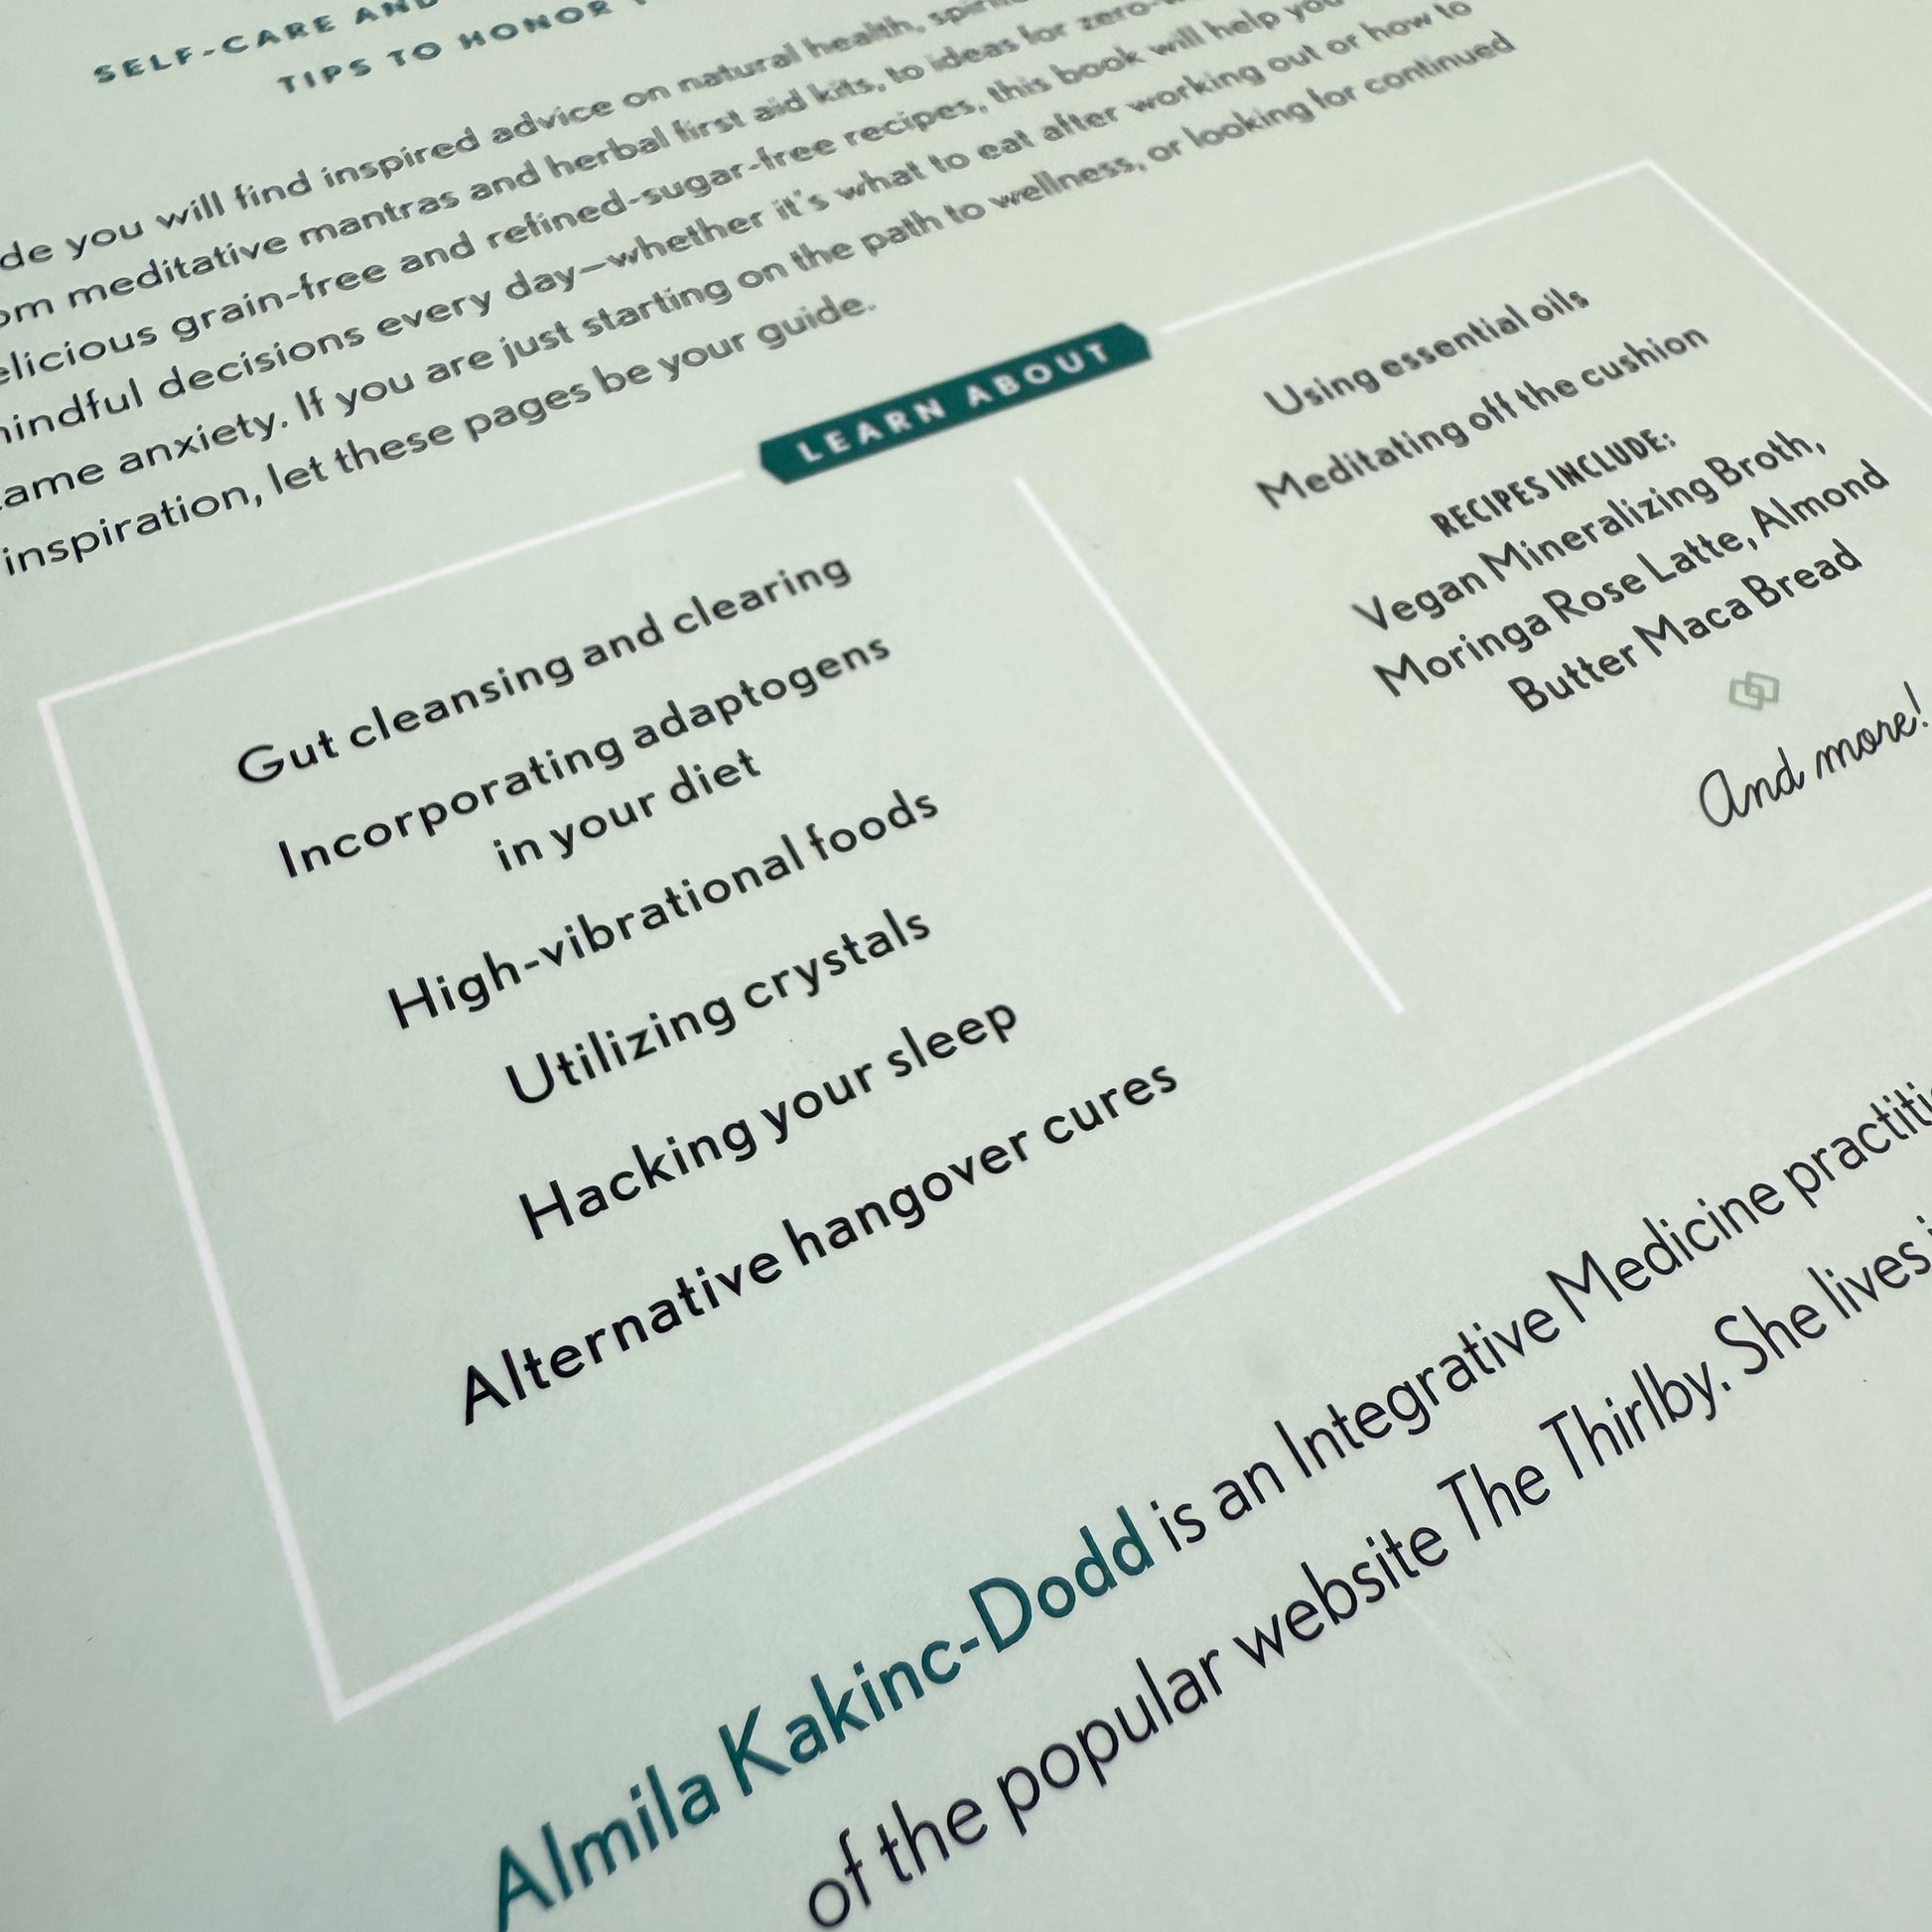 SELF-CARE AND
TIPS TO HONOR
you will find inspired advice on natural health,
meditative mantras and herbal first aid kits, to ideas for
grain-free and refined-sugar-free recipes, this book will help you
decisions every day—whether it's what to eat after working out or how to
anxiety. If you are just starting on the path to wellness, or looking for continued
inspiration, let these pages be your guide.
LEARN ABOUT
Gut cleansing and clearing
Incorporating adaptogens
in your diet
High-vibrational foods
Utilizing crystals
Hacking your sleep
Alternative hangover cures
Using essential oils
Meditating off the cushion
RECIPES INCLUDE:
Vegan Mineralizing Broth,
Moringa Rose Latte, Almond
Butter Maca Bread
And more!
Almila Kakinc-Dodd is an Integrative Medicine
of the popular website The Thirlby. She lives